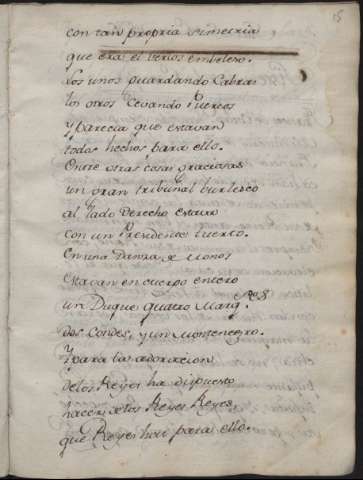 18
con tan propria simetria
que era el verlos embeleso.
los unos guardando Cabras
los otros Cevando Puercos
Y parecia que estavan
todos hechos para ello.
Entre otras cosas graciosas
un gran tribunal burlesco
al lado Derecho estavo
con un Presidente tuerto.
En una Danza de Monos
estavan en cuerpo entero
un Duque quatro Marq.ses
dos Condes, y un Montenegro.
Y para la adoracion
de los Reyes ha dispuesto
hacer a los Reyes Reyes
que Reyes hai para ello.